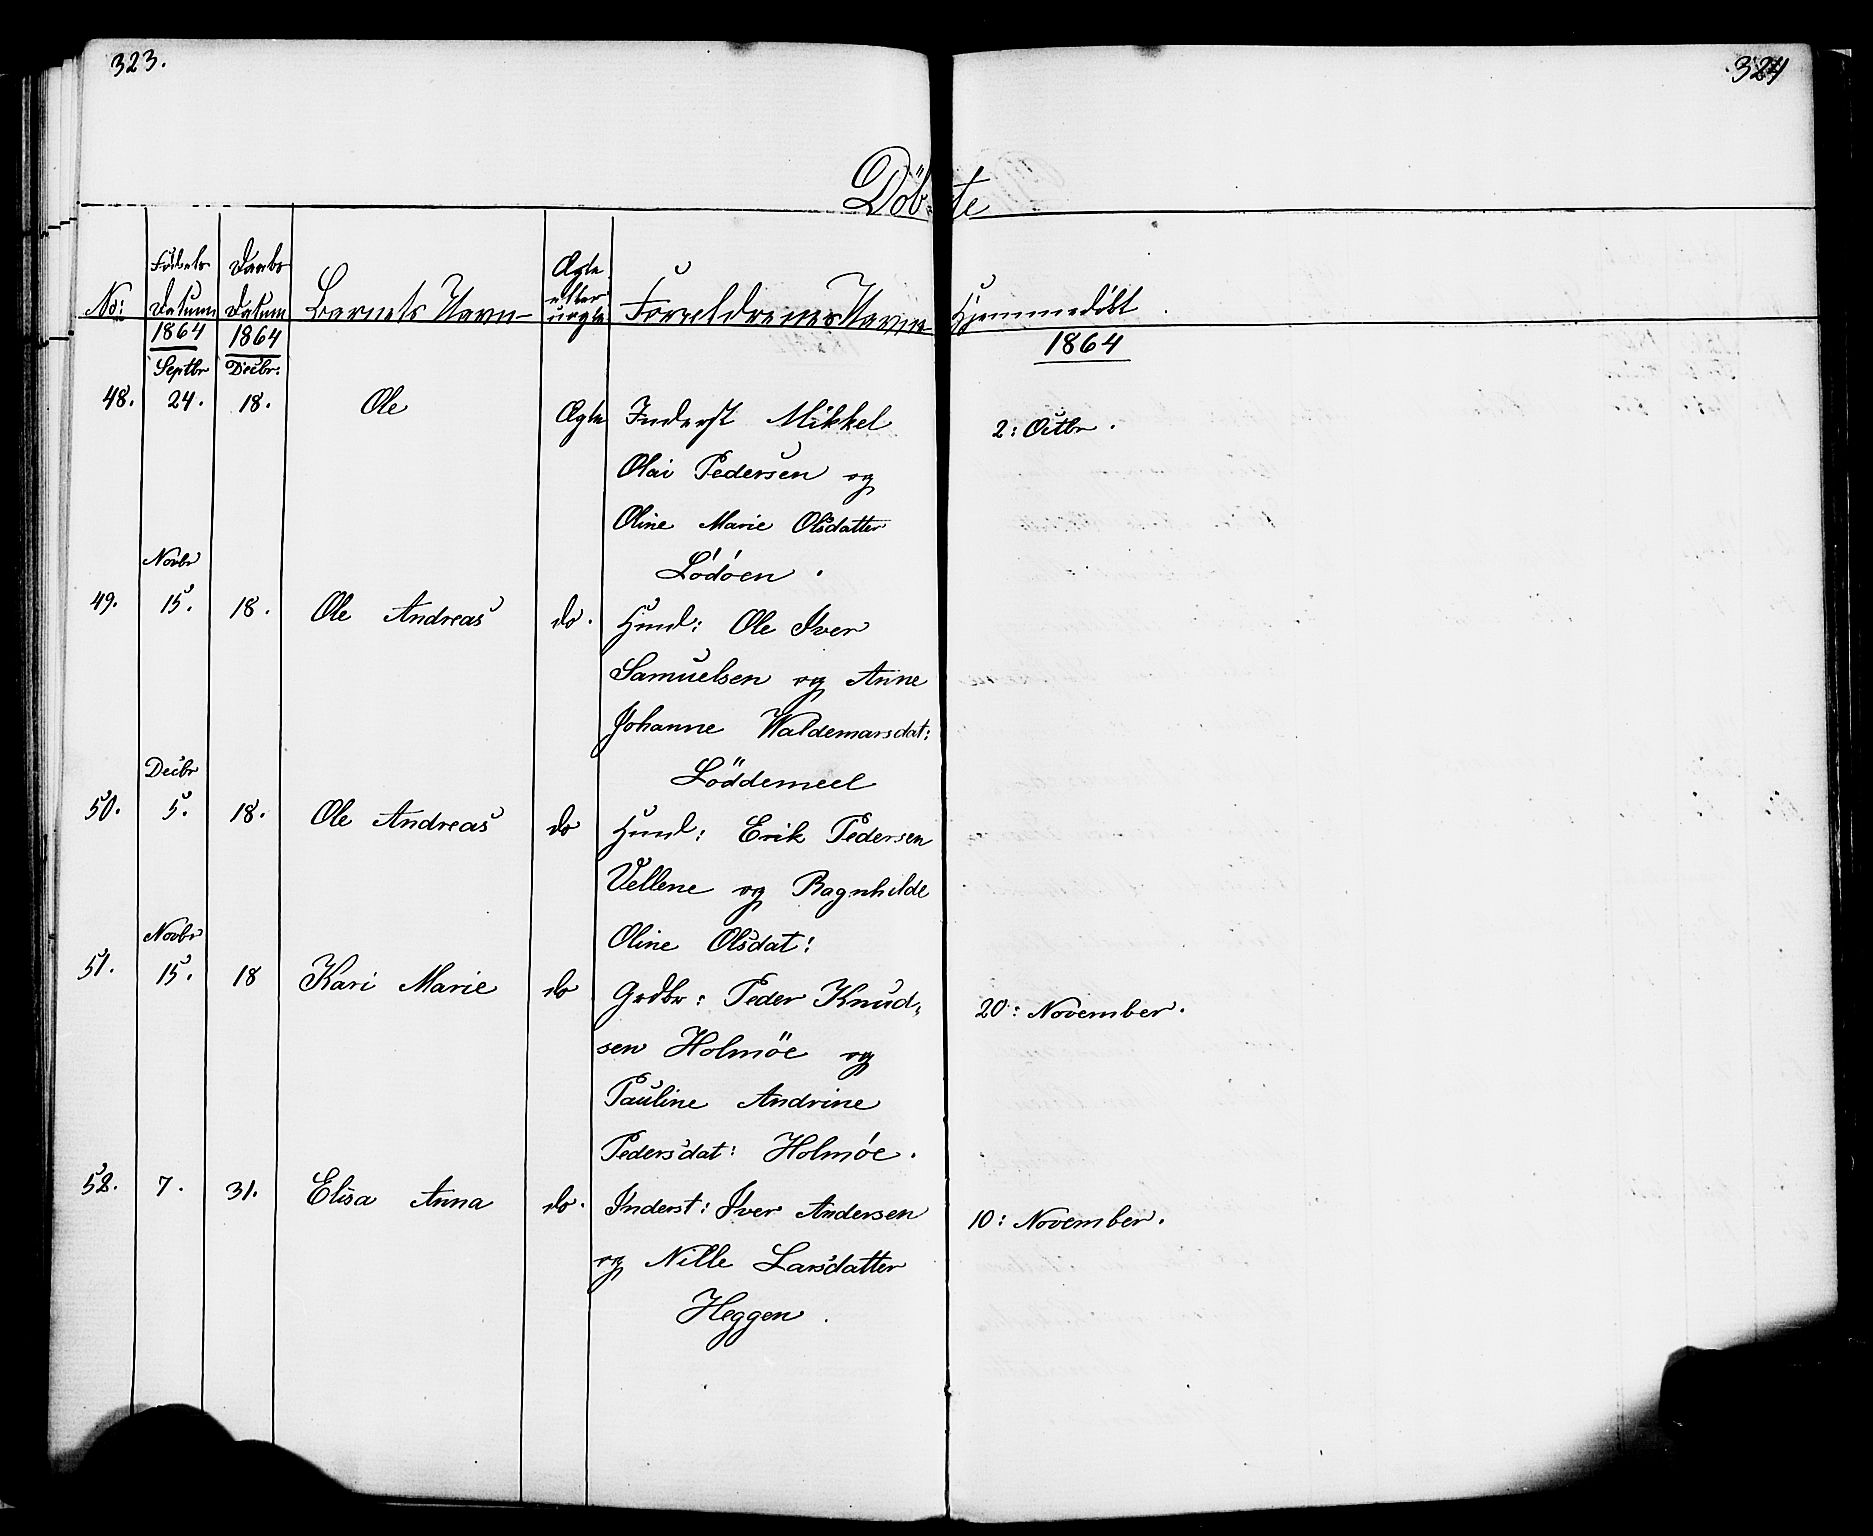 323.
324
Döbte
No:
Fødsels Datum
Daabs Datum
Barnets Navn
Ægte eller uægte
Forældrenes Navne
Hjemmedöbt
1864
1864
1864
Septbr
Decbr:
48. 24. 18. Ole Ægte Inderst Mikkel 2: Octbr.
Olai Pedersen og
Oline Marie Olsdatter
Lödöen.
Novbr
49. 15. 18. Ole Andreas do. Husmd: Ole Iver
Samuelsen og Anne
Johanne Waldemarsdat:
Löddemeel
Decbr
50. 5. 18. Ole Andreas do Husmd: Erik Pedersen
Vellene og Ragnhilde
Oline Olsdat:
Novbr
51. 15. 18 Kari Marie do Grdbr: Peder Knud- 20: November.
sen Holmöe og
Pauline Andrine
Pedersdat: Holmöe.
52. 7. 31. Elisa Anna do. Inderst: Iver Andersen 10: November.
og Nille Larsdatter
Heggen.